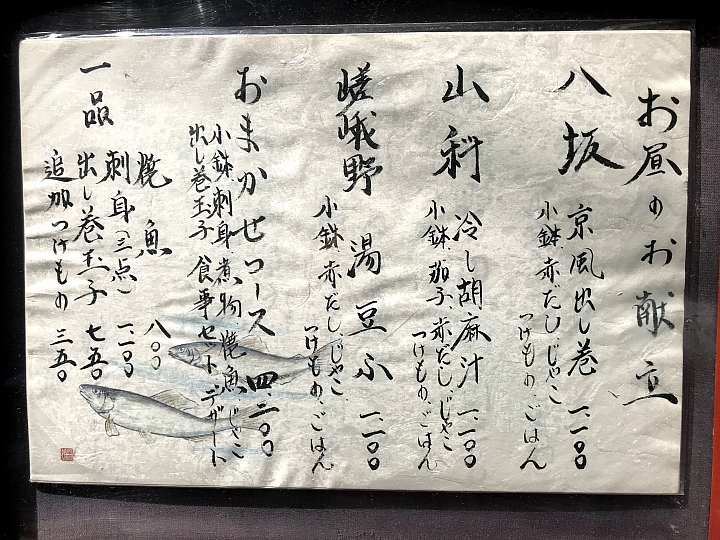 お昼のお献立
八坂 京風出し巻 一、一〇〇
小鉢、赤だし、じゃこ
つけもの、ごはん
山科 冷し胡麻汁 一、一〇〇
小鉢、茄子、赤だし、じゃこ
つけもの、ごはん
嵯峨野 湯豆ふ 一、一〇〇
小鉢、赤だし、じゃこ
つけもの、ごはん
おまかせコース 四、二〇〇
小鉢 刺身 煮物 焼魚 じゃこ
出し巻玉子 食事セット デザート
一品
焼魚 八〇〇
刺身(三点) 一、一〇〇
出し巻玉子 七五〇
追加つけもの 三五〇